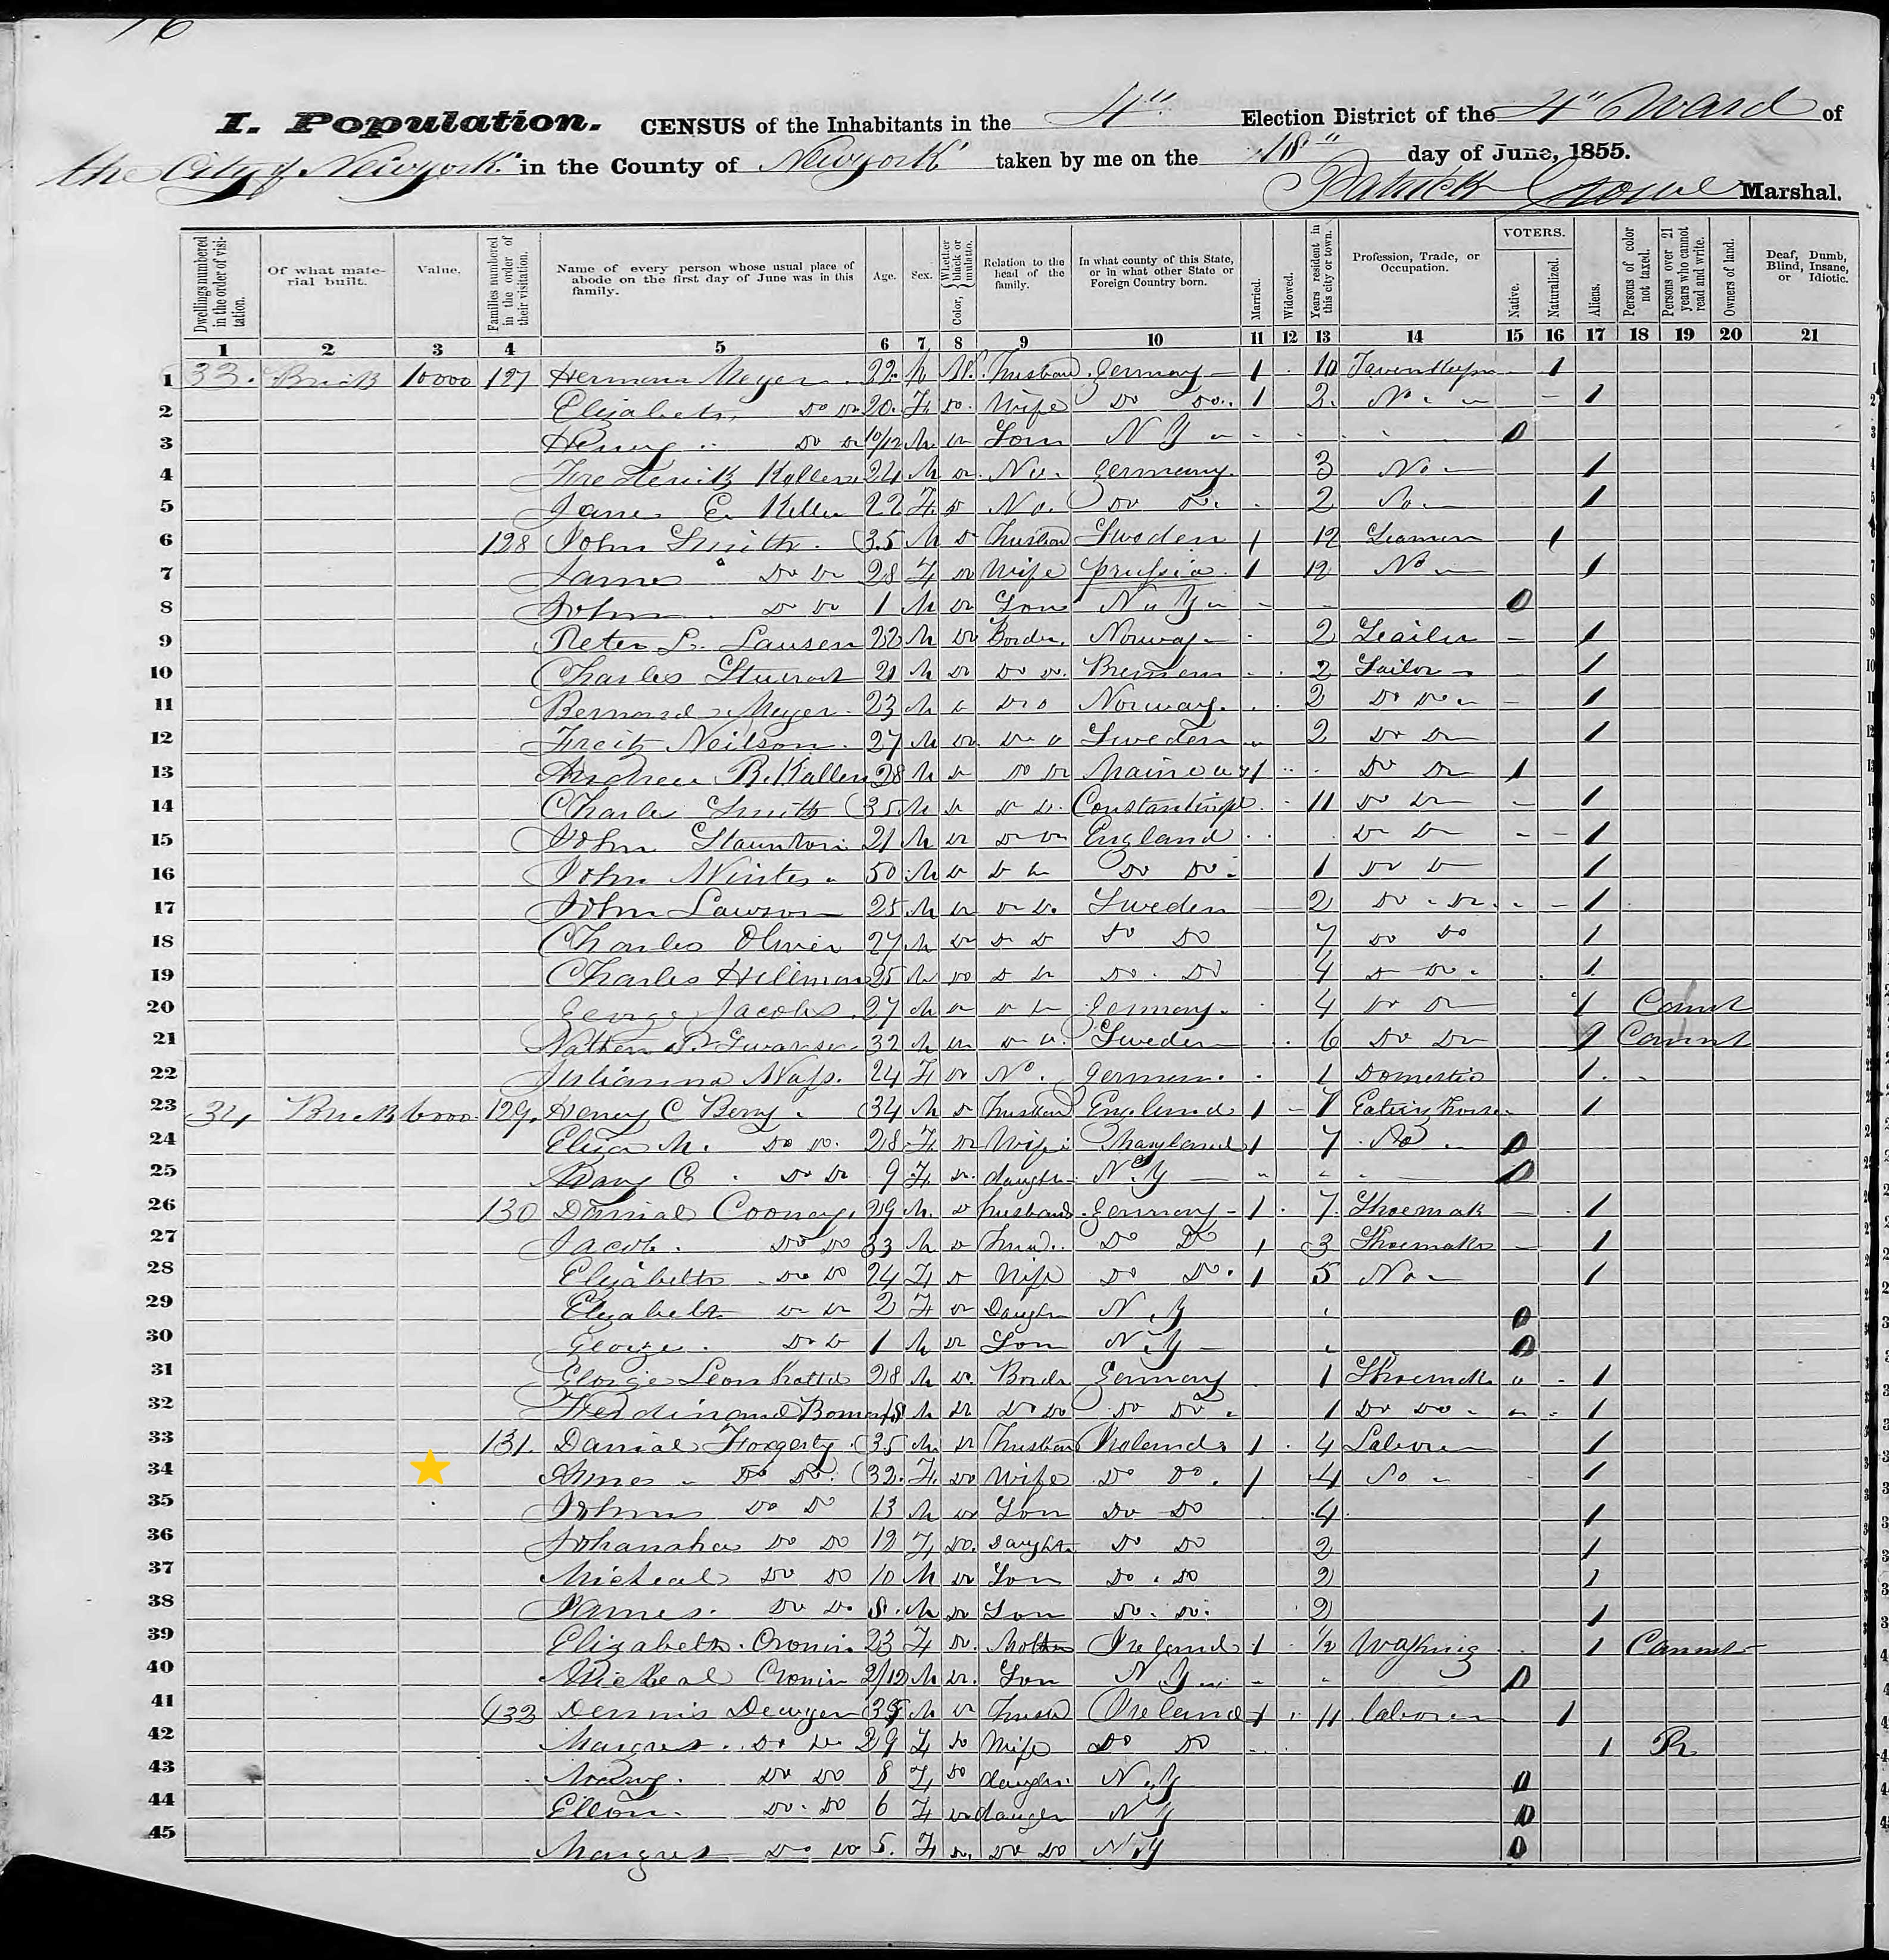 16
I. Population. CENSUS of the Inhabitants in the 4" Election District of the 4" Ward of
the City of Newyork in the County of Newyork taken by me on the 18" day of June, 1855.
Patrick Crowe Marshal.
Dwellings numbered in the order of visitation.
Of what material built.
Value.
Families numbered in the order of their visitation.
Name of every person whose usual place of abode on the first day of June was in this family.
Age.
Sex.
Color, Whether black or mulatto.
Relation to the head of the family.
In what county of this State, or in what other State or Foreign Country born.
Married.
Widowed.
Years resident in this city or town.
Profession, Trade, or Occupation.
VOTERS.
Native.
Naturalized.
Aliens.
Persons of color not taxed.
Persons over 21 years who cannot read and write.
Owners of land.
Deaf, Dumb, Blind, Insane, or Idiotic.
1 2 3 4 5 6 7 8 9 10 11 12 13 14 15 16 17 18 19 20 21
1 33. Brick 10000 127 Hermann Meyer 22 M W. Husban Germany 1 10 1
2 Elizabeth Do Do 20. F. Do. Wife Do Do 1 2. No 1
3 Henry Do Do 10/12 M Do Son N Y 0
4 Frederick 24 M Do No Germany. 3 No 1
5 E. 22 F. Do No. Do Do. 2 No 1
6 128 John Smith. 35 M Do Husban Sweden 1 12 Seamen 1
7 Do Do 28 F Do Wife Prussia 1 12 No 1
8 John Do Do 1 M Do Son N Y 0
9 Peter L. Lausen 22 M Do Border. Norway 2 1
10 Charles 21 M Do Do Do. Bremen 2 Sailor 1
11 Bernard Meyer 23 M Do Do Norway. 2 Do Do 1
12 Neilson. 27 M Do Do Do Sweden 2 Do Do 1
13 Andrew 28 M Do Do Do Maine 1 Do Do 1
14 Charles Smith 35 M Do Do Do. 11 Do Do 1
15 John Staunton 21 M Do Do Do England Do Do 1
16 John Winter 50 M Do Do Do Do Do 1 Do Do 1
17 John Lawson 25 M Do Do Do. Sweden 2 Do Do. 1
18 Charles Olivier 27 M Do Do Do Do Do 7 Do Do 1
19 Charles Hilleman 25 M Do Do Do Do Do 4 Do Do 1
20 George Jacobs 27 M Do Do Do Germany. 4 Do Do 1
21 32 M Do Do Do Sweden 6 Do Do
22 Julianna 24 F Do No. German. 1 Domestic 1
23 34 Brick 6000 129. Henry C Berry 34 M Do Husban England 1 7 Eating house 1
24 Eliza M. Do Do. 28 F Do Wife Maryland 1 7 No 0
25 Mary C Do Do 9 F. Do. daughter N. Y 0
26 130 Danial Cooney 29 M. Do husband Germany 1 7. Shoemak 1
27 Jacob. Do Do 33 M Do Do Do 1 3 Shoemaker 1
28 Elizabeth Do Do 24 F Do Wife Do Do. 1 5 No 1
29 Elizabeth Do Do 2 F Do Daughtr N. Y 0
30 George. Do Do 1 M Do Son N. Y 0
31 George 28 M Do. Border Germany 1 Shoemak 1
32 Ferdinand 18 M Do Do Do Do Do 1 Do Do 1
33 131. Danial Fogerty 35 M Do Husban Ireland 1 4 Laborer 1
34 Do Do. 32. F. Do Wife Do Do. 1 4 No 1
35 John Do Do 13 M Do Son Do Do 4 1
36 Johanaha Do Do 12 F. Do. Daughtr Do Do 2 1
37 Micheal Do Do 10 M Do Son Do Do 2 1
38 James. Do Do. 8. M Do Son Do. Do. 2 1
39 Elizabeth Cronin 23 F Do. Mother Ireland 1 1/2 Washing 1
40 Micheal Cronin 2/12 M Do. Son N Y 0
41 132 Dennis Dewyer M Do Ireland 1 11 laborer 1
42 Margret Do Do 29 F Do Wife Do Do 1 R
43 Mary. Do Do 8 F Do daughtr. N. Y 0
44 Ellen. Do Do 6 F Do N Y 0
45 Margret Do Do 5. F Do. Do Do N. Y 0